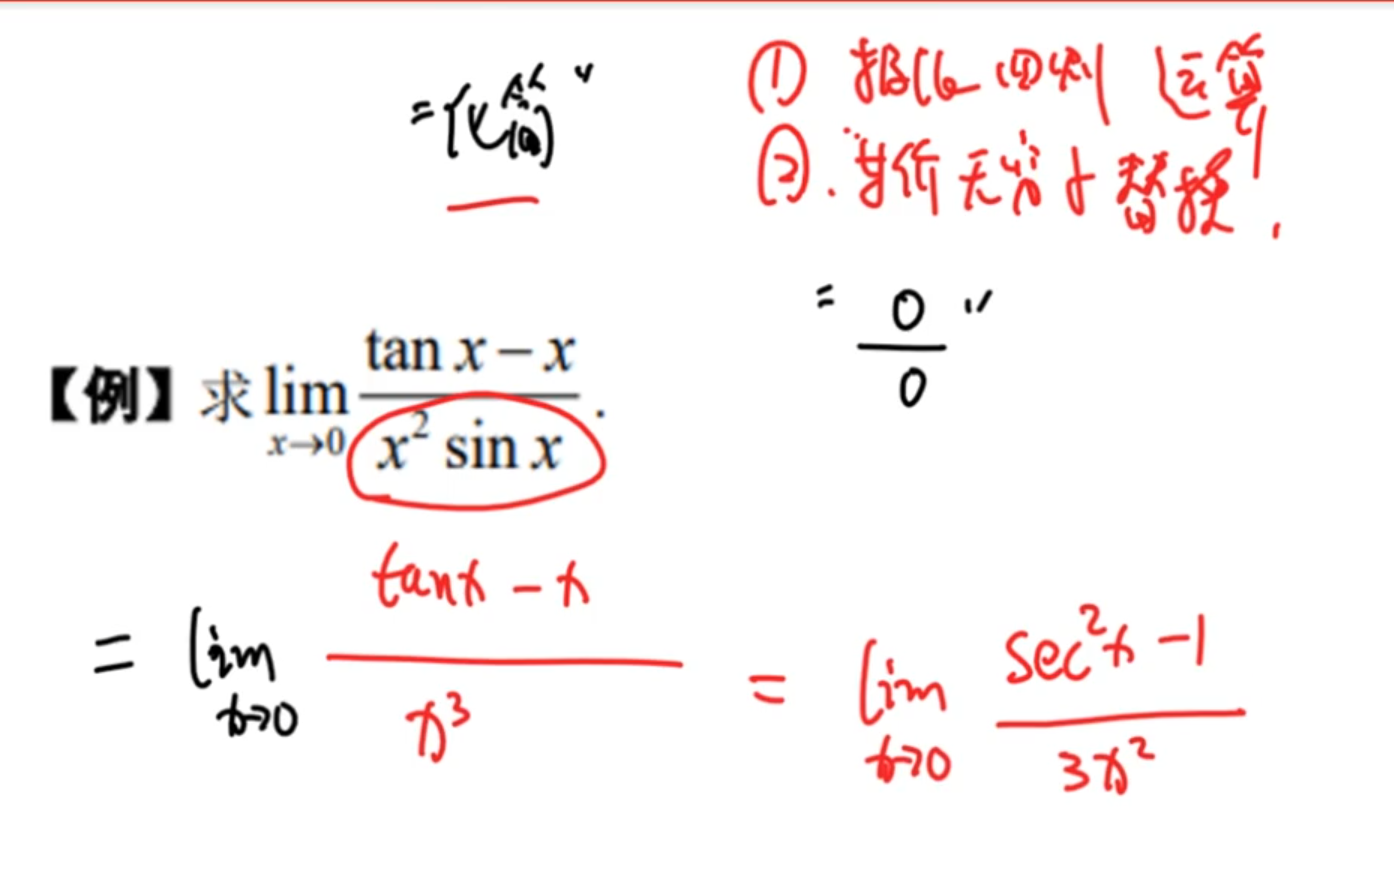 "化简"
① 极限四则运算
②. 等价无穷小替换.
"0/0"
【例】求 lim x→0 (tan x − x)/(x² sin x).
= lim x→0 (tanx − x)/x³ = lim x→0 (sec²x − 1)/3x²